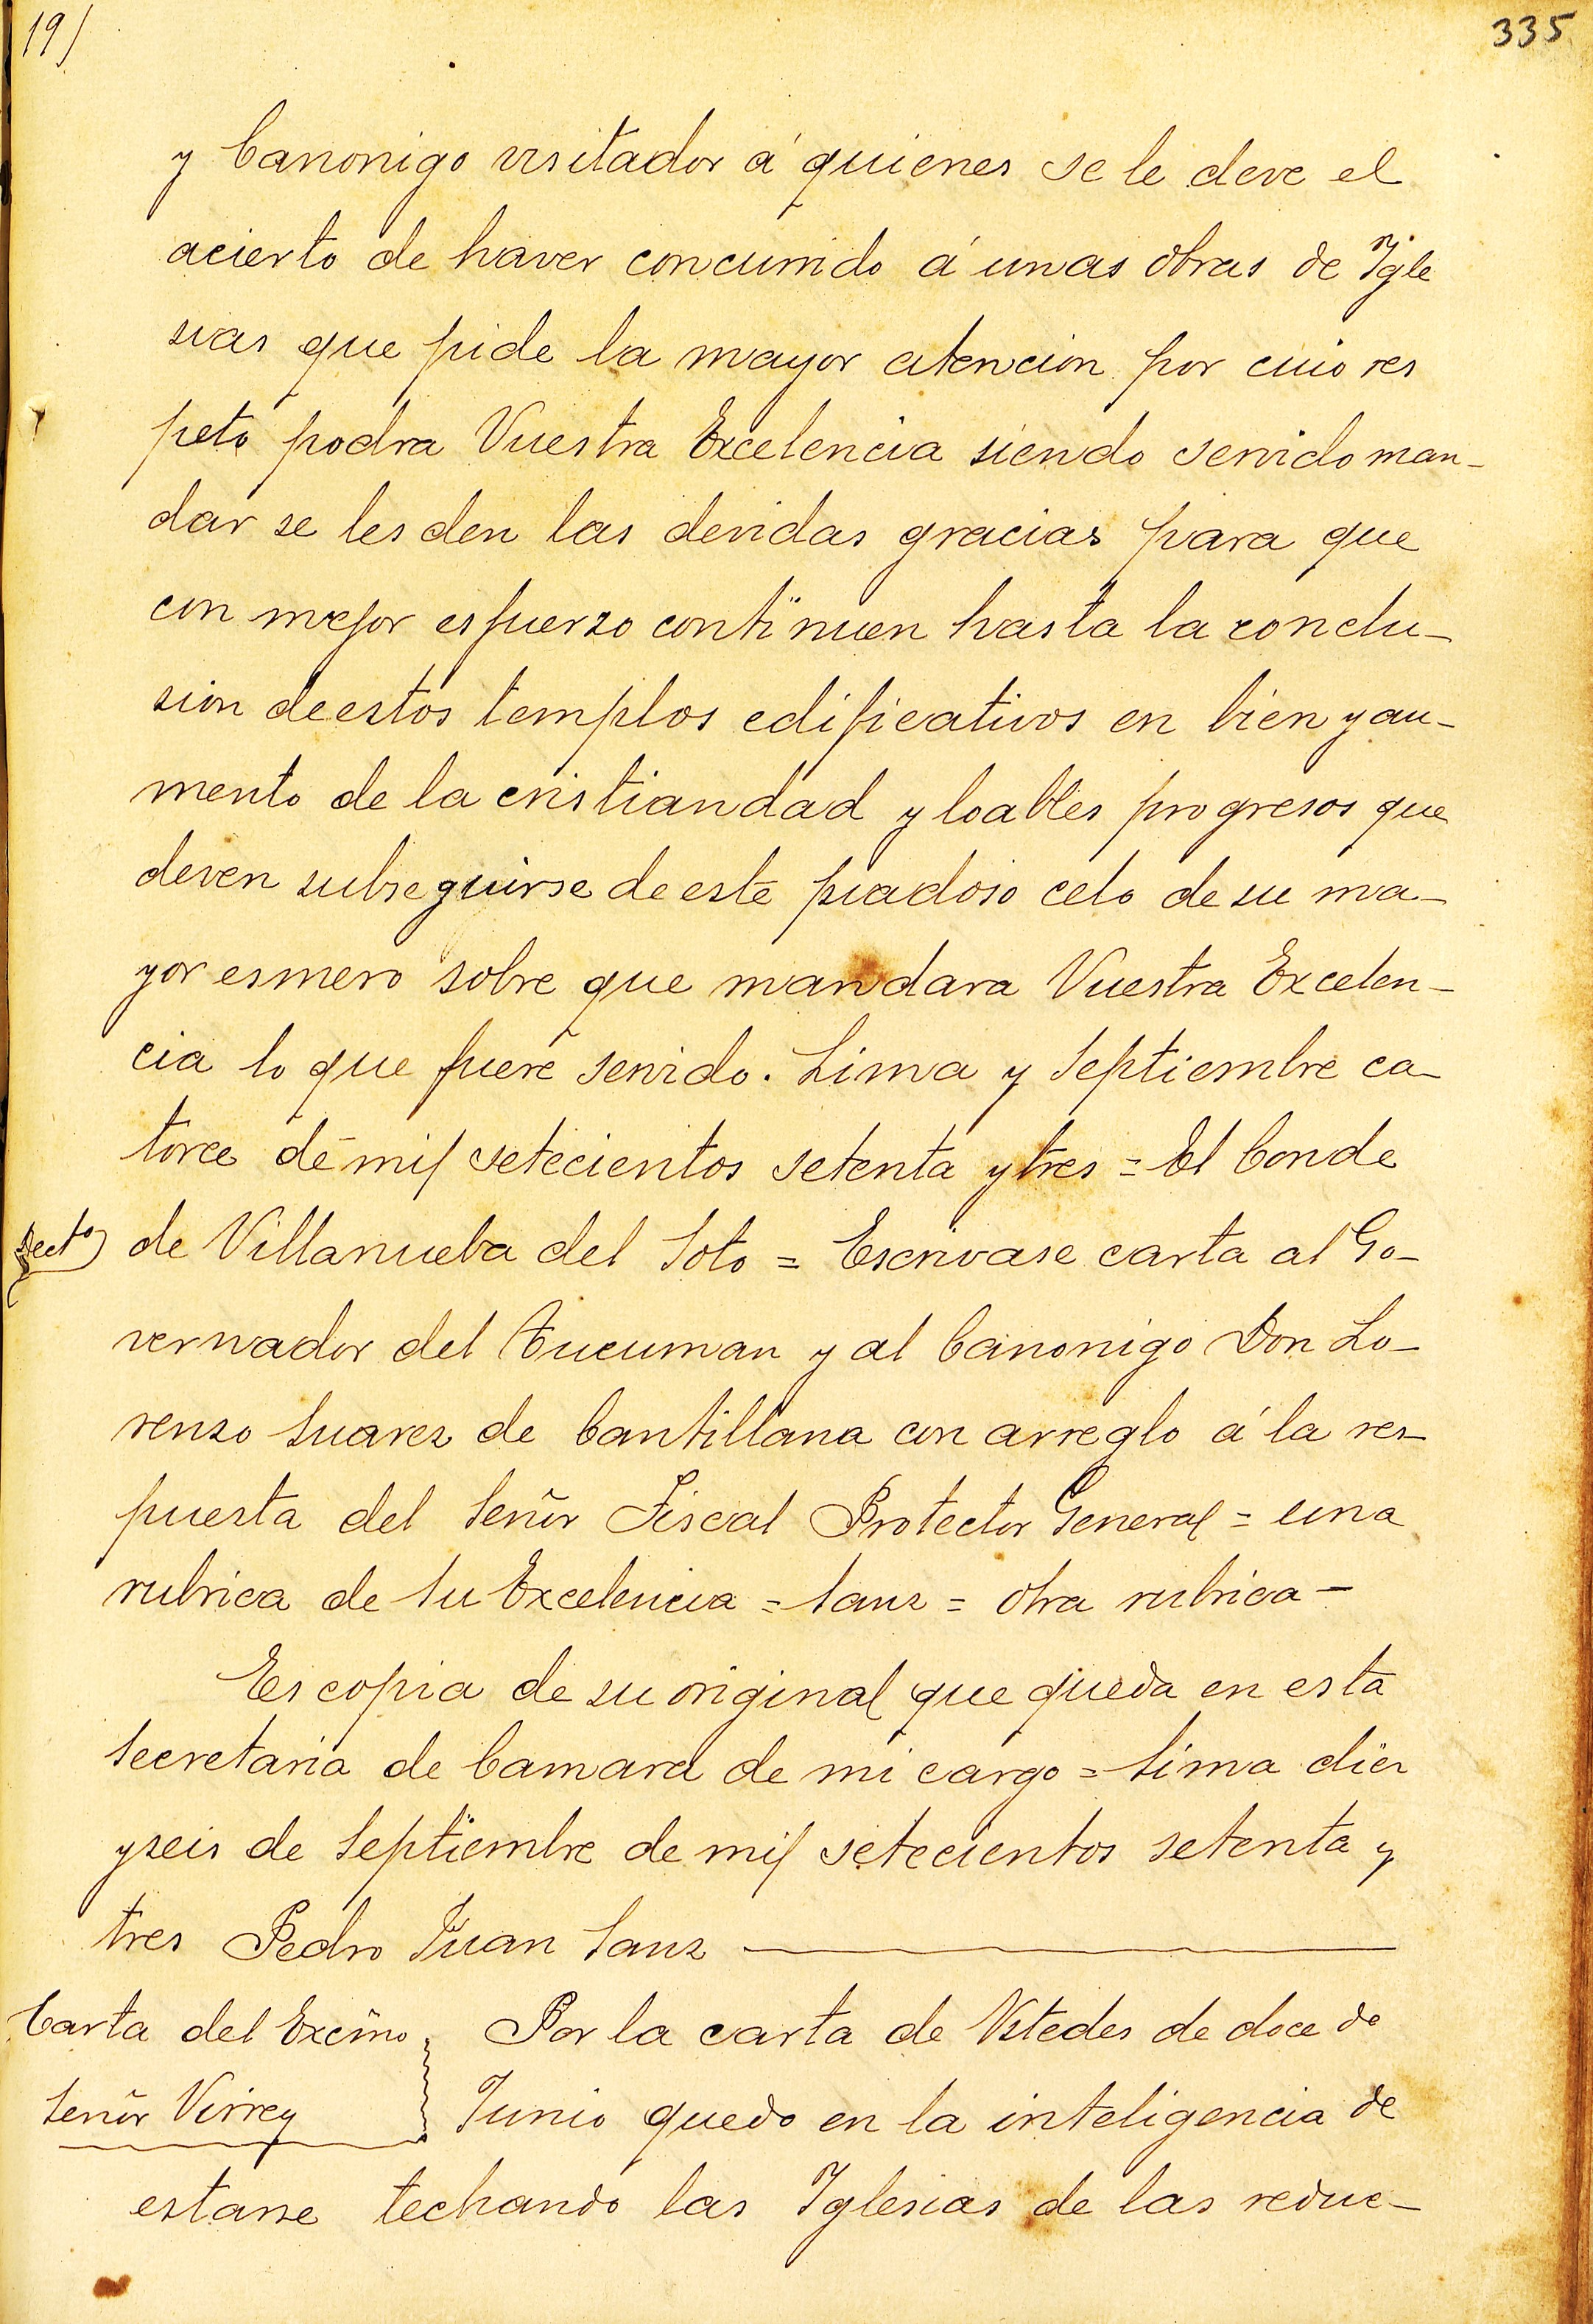 19)
335
y Canonigo visitador á quienes se le deve el
acierto de haver concurrido á unas obras de Ygle
sias que pide la mayor atencion por cuio res
peto podra Vuestra Excelencia siendo servido man-
dar se les den las devidas gracias para que
con mejor esfuerzo continuen hasta la conclu-
sion de estos templos edificativos en bien y au-
mento de la cristiandad y loables progresos que
deven subseguirse de este piadoso celo de su ma-
yor esmero sobre que mandara Vuestra Excelen-
cia lo que fuere servido. Lima y Septiembre ca-
torce de mil setecientos setenta y tres = El Conde
de Villanueba del Soto = Escrivase carta al Go-
vernador del Tucuman y al Canonigo Don Lo-
renzo Suarez de Cantillana con arreglo á la res-
puesta del Señor Fiscal Protector General = una
rubrica de Su Excelencia = Sanz = otra rubrica -
Es copia de su original que queda en esta
Secretaria de Camara de mi cargo = Lima diez
y seis de Septiembre de mil setecientos setenta y
tres Pedro Juan Sanz
Carta del Excmo
Señor Virrey
Por la carta de Vstedes de doce de
Junio quedo en la inteligencia de
estarse techando las Yglesias de las reduc-